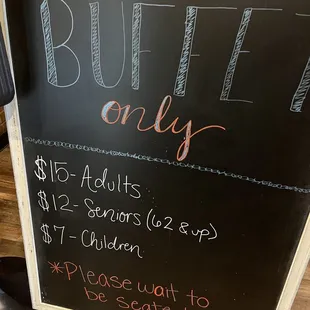 BUFFET
only
$15 - Adults
$12 - Seniors (62 & up)
$7 - Children
*Please wait to
be seated